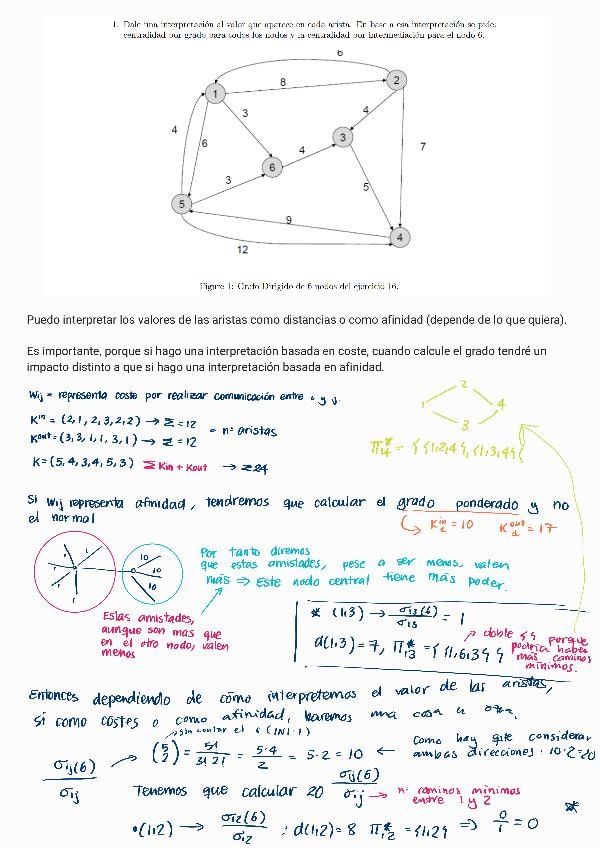 1. Dale una interpretación al valor que aparece en cada arista. En base a esa interpretación se pide:
centralidad por grado para todos los nodos y la centralidad por intermediación para el nodo 6.
6
1
8
2
3
4
3
4
6
4
6
7
3
5
5
9
4
12
Figure 1: Grafo Dirigido de 6 nodos del ejercicio 16.
Puedo interpretar los valores de las aristas como distancias o como afinidad (depende de lo que quiera).
Es importante, porque si hago una interpretación basada en coste, cuando calcule el grado tendré un
impacto distinto a que si hago una interpretación basada en afinidad.
Wij = representa coste por realizar comunicación entre i y j.
K^in = (2,1,2,3,2,2) → Σ = 12
K^out = (3,3,1,1,3,1) → Σ = 12
= nº aristas
K = (5,4,3,4,5,3) Σ Kin + Kout → Σ 24
2
1
4
3
π*14 = {{1,2,4},{1,3,4}}
Si Wij representa afinidad, tendremos que calcular el grado ponderado y no
el normal
K^in_2 = 10 K^out_1 = 17
1
1
1
1
10
10
10
Por tanto diremos
que estas amistades, pese a ser menos valen
más ⇒ Este nodo central tiene más poder.
Estas amistades,
aunque son más que
en el otro nodo, valen
menos
* (1,3) → σ13(6)/σ13 = 1
d(1,3) = 7, π*13 = {{1,6,3}}
doble {{ porque
podría haber
más caminos
mínimos.
Entonces dependiendo de cómo interpretemos el valor de las aristas,
si como costes o como afinidad, haremos una cosa u otra.
sin contar el 6 (|N|-1)
σij(6)/σij → (5 2) = 5!/3!2! = 5·4/2 = 5·2 = 10 ← Como hay que considerar
ambas direcciones: 10·2=20
Tenemos que calcular 20 σij(6)/σij → nº caminos mínimos
entre 1 y 2
• (1,2) → σ12(6)/σ12 : d(1,2) = 8 π*12 = {1,2} ⇒ 0/1 = 0
*